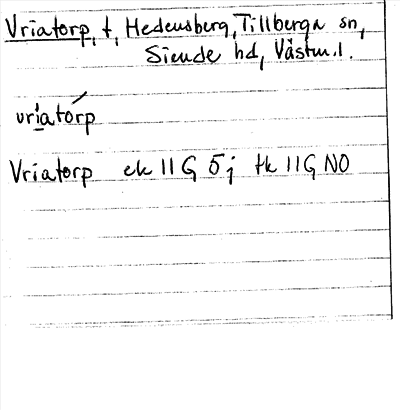 Vriatorp, t, Hedensberg, Tillberga sn,
Siende hd, Västm.l.
vriatórp
Vriatorp ek 11 G 5j tk 11 G NO